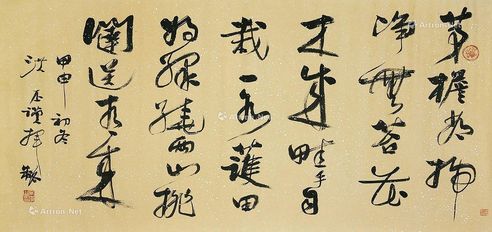 茅檐長掃
淨無苔花
木成畦手自
栽一水護田
將綠繞兩山排
闥送青來
甲申初冬
Artron.Net
Artron.Net
Artron.Net